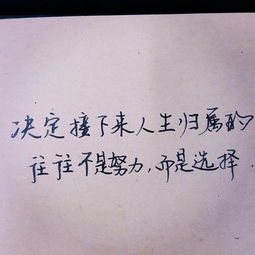 决定接下来人生归属的
往往不是努力，而是选择